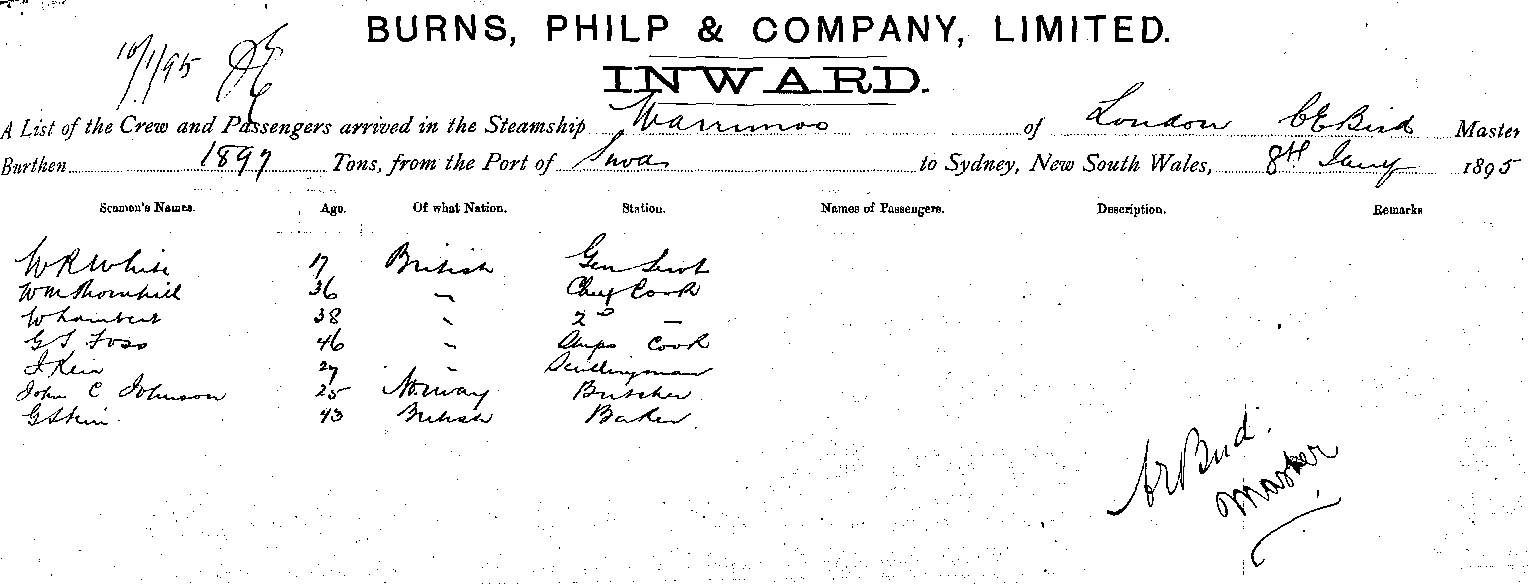 BURNS, PHILP & COMPANY, LIMITED.
10/1/95
INWARD.
A List of the Crew and Passengers arrived in the Steamship Warrimoo of London C E Bird Master
Burthen 1897 Tons, from the Port of Suva to Sydney, New South Wales, 8th Jany 1895
Seamen's Names. Age. Of what Nation. Station. Names of Passengers. Description. Remarks
W R White 17 British Gen Servt
Wm Thornhill 36 " Chief Cook
W Lambert 38 " 2nd —
G S Foss 46 " Cook
Keir 27 " Scullingman
John C Johnson 25 Norway Butcher
G Skin 43 British Baker
Bird.
Master